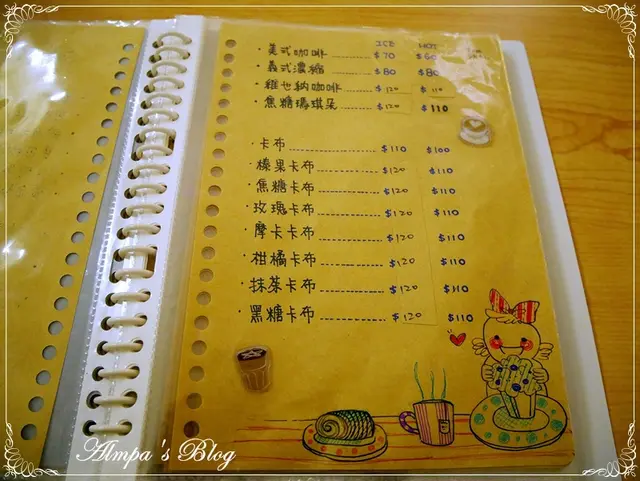 ICE HOT
·美式咖啡 $70 $60
·義式濃縮 $80 $80
·維也納咖啡 $120 $110
·焦糖瑪琪朵 $120 $110
·卡布 $110 $100
·榛果卡布 $120 $110
·焦糖卡布 $120 $110
·玫瑰卡布 $120 $110
·摩卡卡布 $120 $110
·柑橘卡布 $120 $110
·抹茶卡布 $120 $110
·黑糖卡布 $120 $110
Almpa's Blog